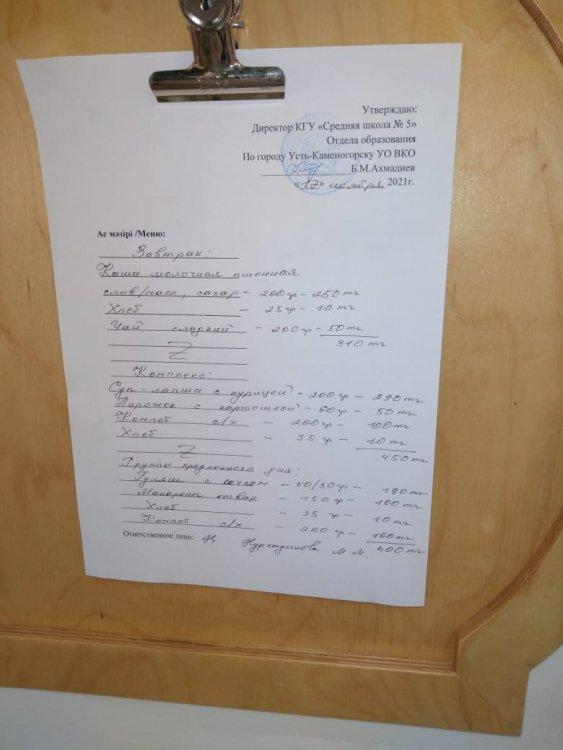 Утверждаю:
Директор КГУ «Средняя школа № 5»
Отдела образования
По городу Усть-Каменогорску УО ВКО
Б.М.Ахмадиев
«17» ноября 2021г.
Ас мәзірі /Меню:
Завтрак:
Каша молочная пшенная
слив/масл, сахар - 200гр - 250тг
Хлеб - 25гр - 10тг
Чай сладкий - 200гр - 50тг
310тг
Комплекс:
Суп-лапша с курицей - 200гр - 290тг
Пирожок с картошкой - 60гр - 50тг
Компот с/х - 200гр - 100тг
Хлеб - 35гр - 10тг
450тг
Группа продленного дня:
Гуляш с соусом - 50/30гр - 190тг
Макароны отвар - 150гр - 100тг
Хлеб - 35гр - 10тг
Компот с/х - 200гр - 100тг
400тг
Ответственное лицо: М М